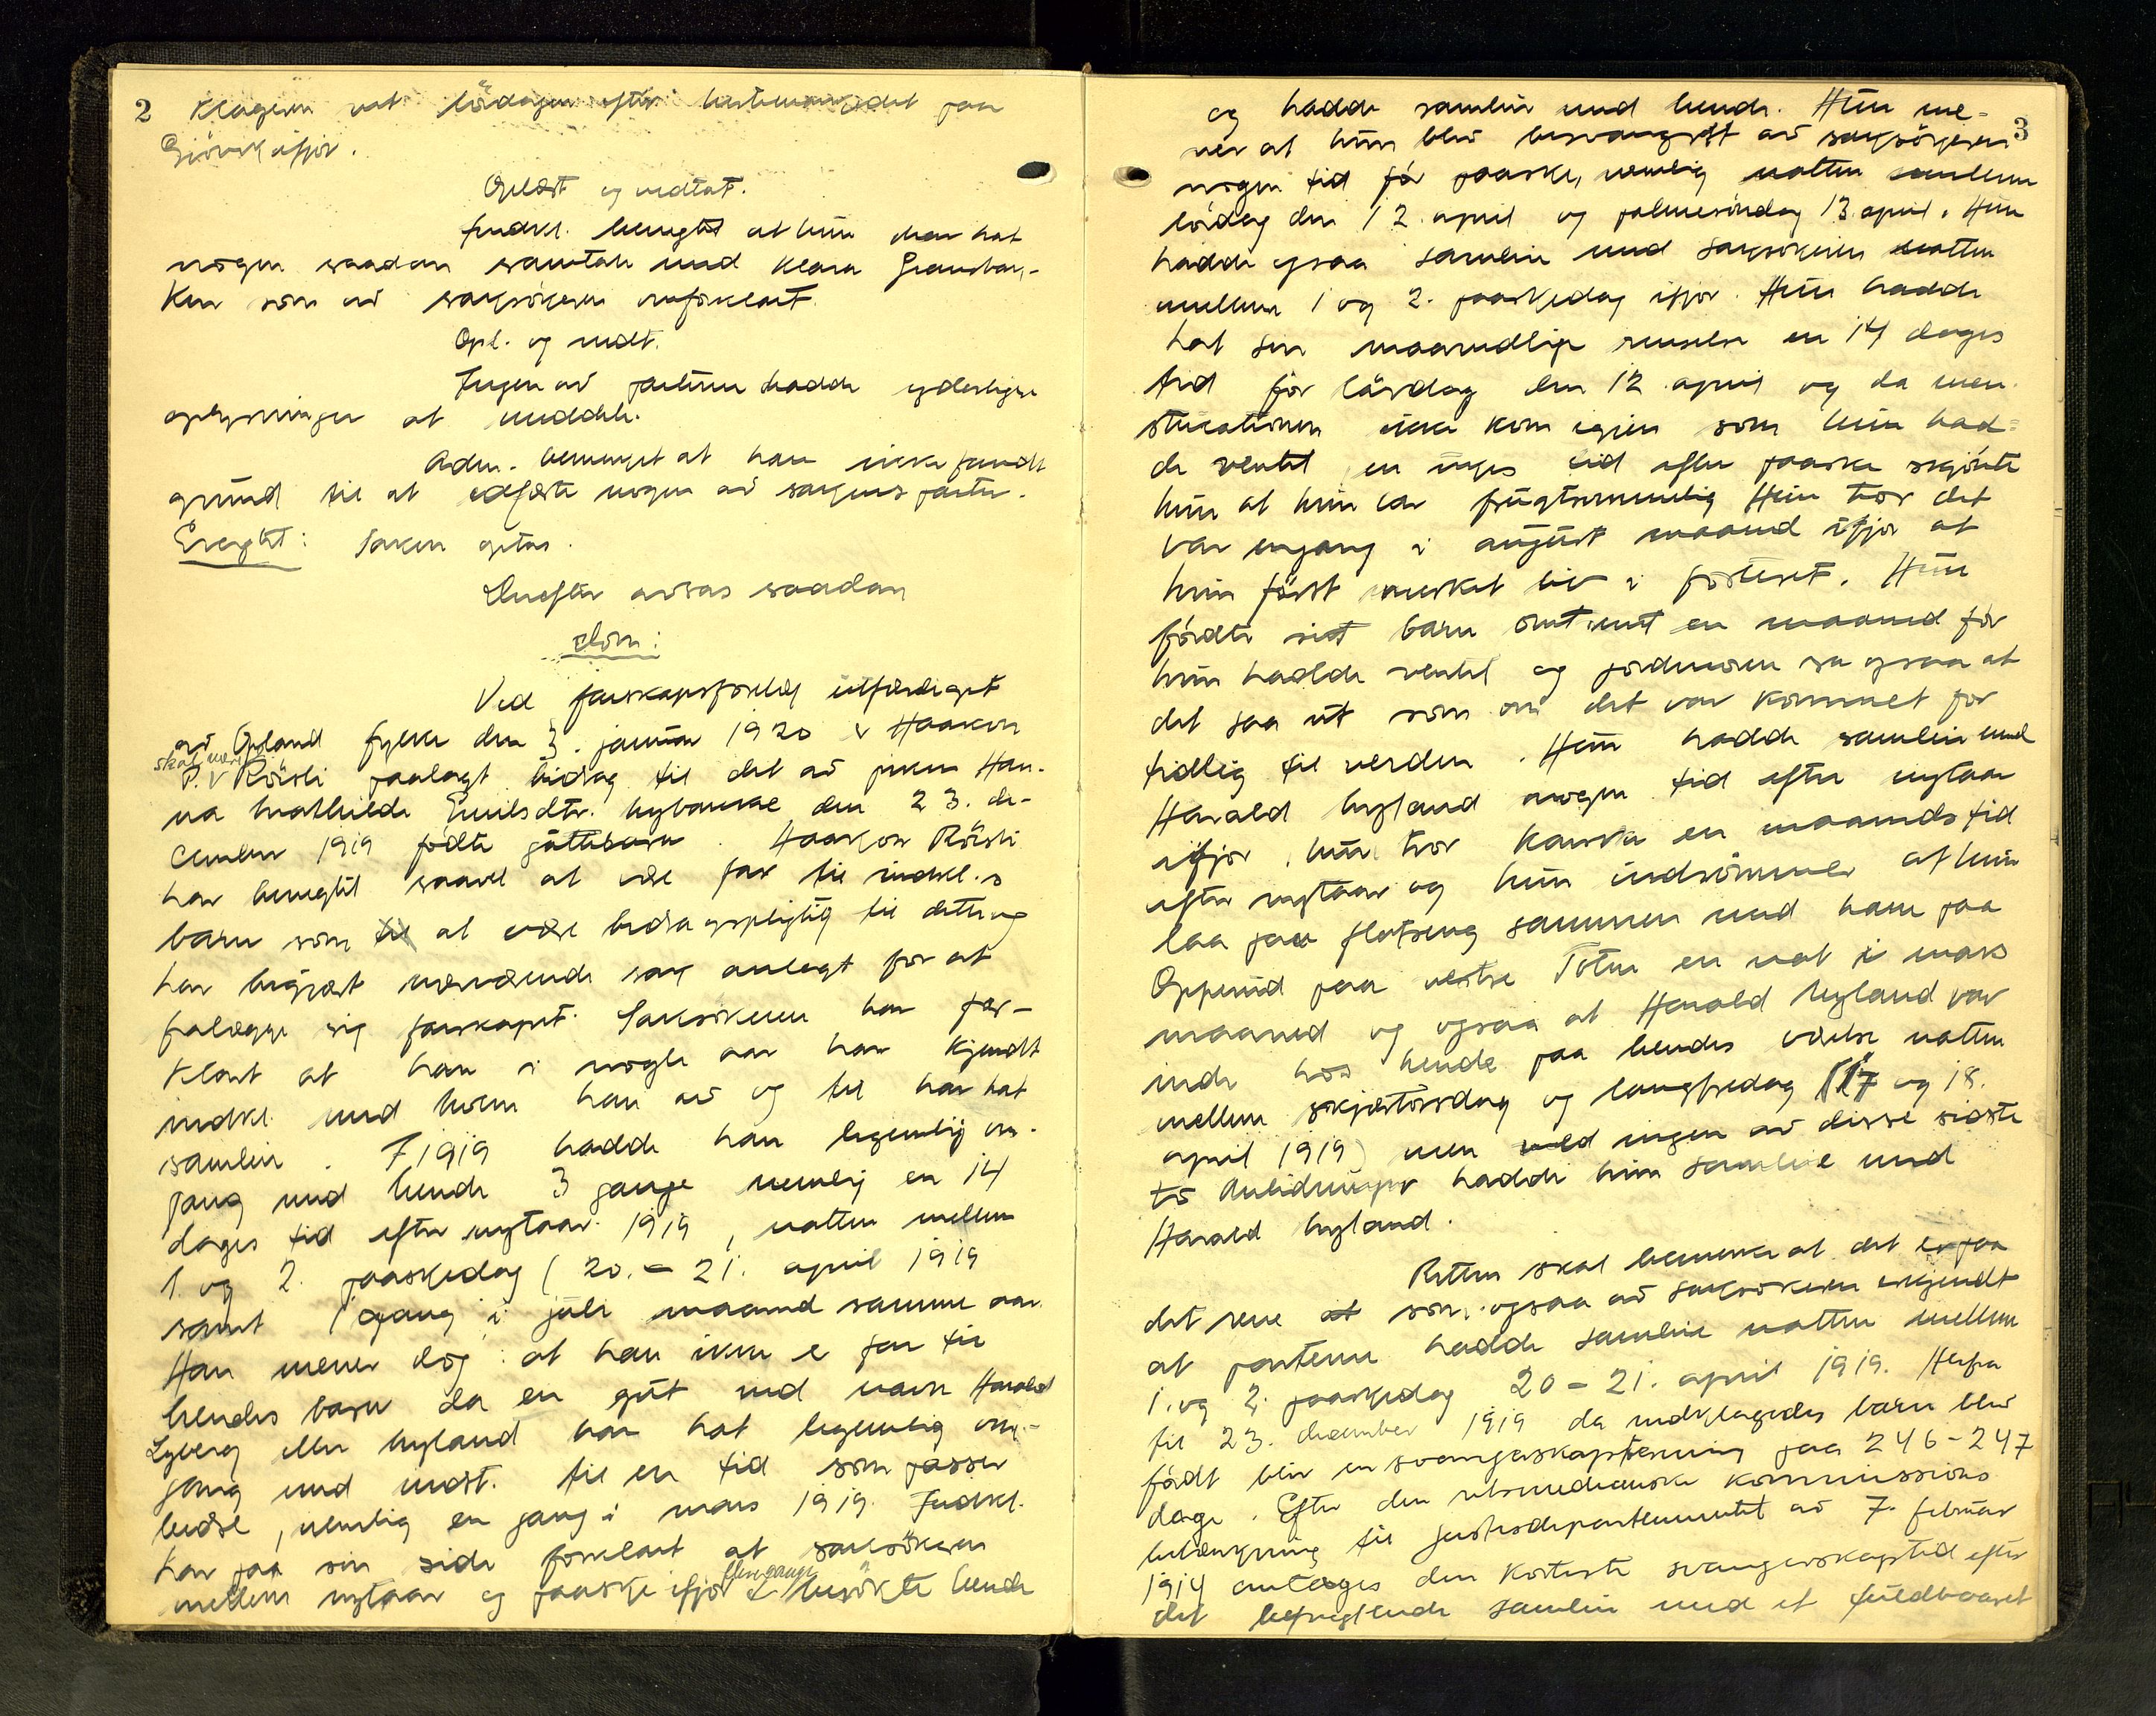 2 Klageren at lördagen efter hestemarkedet paa
Gjövik ifjor.
Oplæst og vedtat.
Indkl. benegtet at hun har hat
nogen saadan samtale med Klara Gransbak-
ken som av saksökeren omforklart.
Opl. og vedt.
Ingen av parterne hadde yderligere
oplysninger at meddele.
Adm. bemerket at han ikke fandt
grund til at edfæste nogen av sakens parter.
Eragtet: Saken optas.
Derefter avsas saadan
dom:
Ved farskapsforelæg utfærdiget
av Opland fylke den 3. januar 1920 er Haakon
skal være
P. v Röisli paalagt bidrag til det av piken Han-
na Mathilde Emilsdtr. Nybakke den 23. de-
cember 1919 födte guttebarn. Haakon Röisli
har benegtet saavel at være far til indkl.s
barn som til at være bidragspligtig til dette og
har begjært nærværende sak anlagt for at
fralægge sig farskapet. Saksökeren har for-
klart at han i nogle aar har kjendt
indkl. med hvem han av og til har hat
samleie. I 1919 hadde han legemlig om-
gang med hende 3 gange nemlig en 14
dages tid efter nytaar 1919, natten mellem
1. og 2. paaskedag (20. - 21. april 1919
samt 1 gang i juli maaned samme aar.
Han mener dog at han ikke er far til
hendes barn da en gut ved navn Harald
Lyberg eller Nyland har hat legemlig om-
gang med indst. til en tid som passer
bedre, nemlig en gang i mars 1919. Indkl.
har paa sin side forklart at saksökeren
flere gange
mellem nytaar og paaske ifjor v besökte hende
og hadde samleie med hende. Hun me-
3
ner at hun blev besvangret av saksökeren
nogen tid för paaske, nemlig natten mellem
lördag den 12. april og palmesöndag 13. april. Hun
hadde ogsaa samleie med saksökeren natten
mellem 1 og 2. paaskedag ifjor. Hun hadde
hat sin maanedlige renselse en 14 dages
tid för lördag den 12 april og da men-
struationen ikke kom igjen som hun had-
de ventet en ukes tid efter paaske skjönte
hun at hun var frugtsommelig Hun tror det
var engang i august maaned ifjor at
hun först merket liv i fosteret. Hun
födte sit barn omtrent en maaned för
hun hadde ventet og jordmoren sa ogsaa at
det saa ut som om det var kommet for
tidlig til verden. Hun hadde samleie med
Harald Nyland nogen tid efter nytaar
ifjor, hun tror kanske en maaneds tid
efter nytaar og hun indrömmer at hun
laa paa flatseng sammen med ham paa
Oppenud paa vestre Toten en nat i mars
maaned og ogsaa at Harald Nyland var
inde hos hende paa hendes værelse natten
mellem skjærtorsdag og langfredag (17 og 18.
april 1919) men ved ingen av disse sidste
to anledninger hadde hun samleie med
Harald Nyland.
Retten skal bemerke at det er paa
det rene at som ogsaa av saksökeren erkjendt
at parterne hadde samleie natten mellem
1. og 2. paaskedag 20 - 21. april 1919. Herfra
til 23. december 1919 da indklagedes barn blev
födt blir en svangerskapstemin paa 246 - 247
dage. Efter den retsmedicinske kommissions
betænkning til justisdepartementet av 7. februar
1914 antages den korteste svangerskapstid efter
det befrugtende samleie med et fuldbaaret